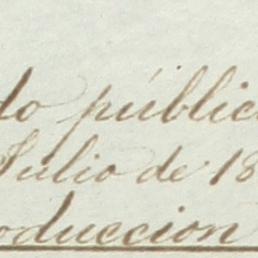 do públic
Julio de 18
oduccion